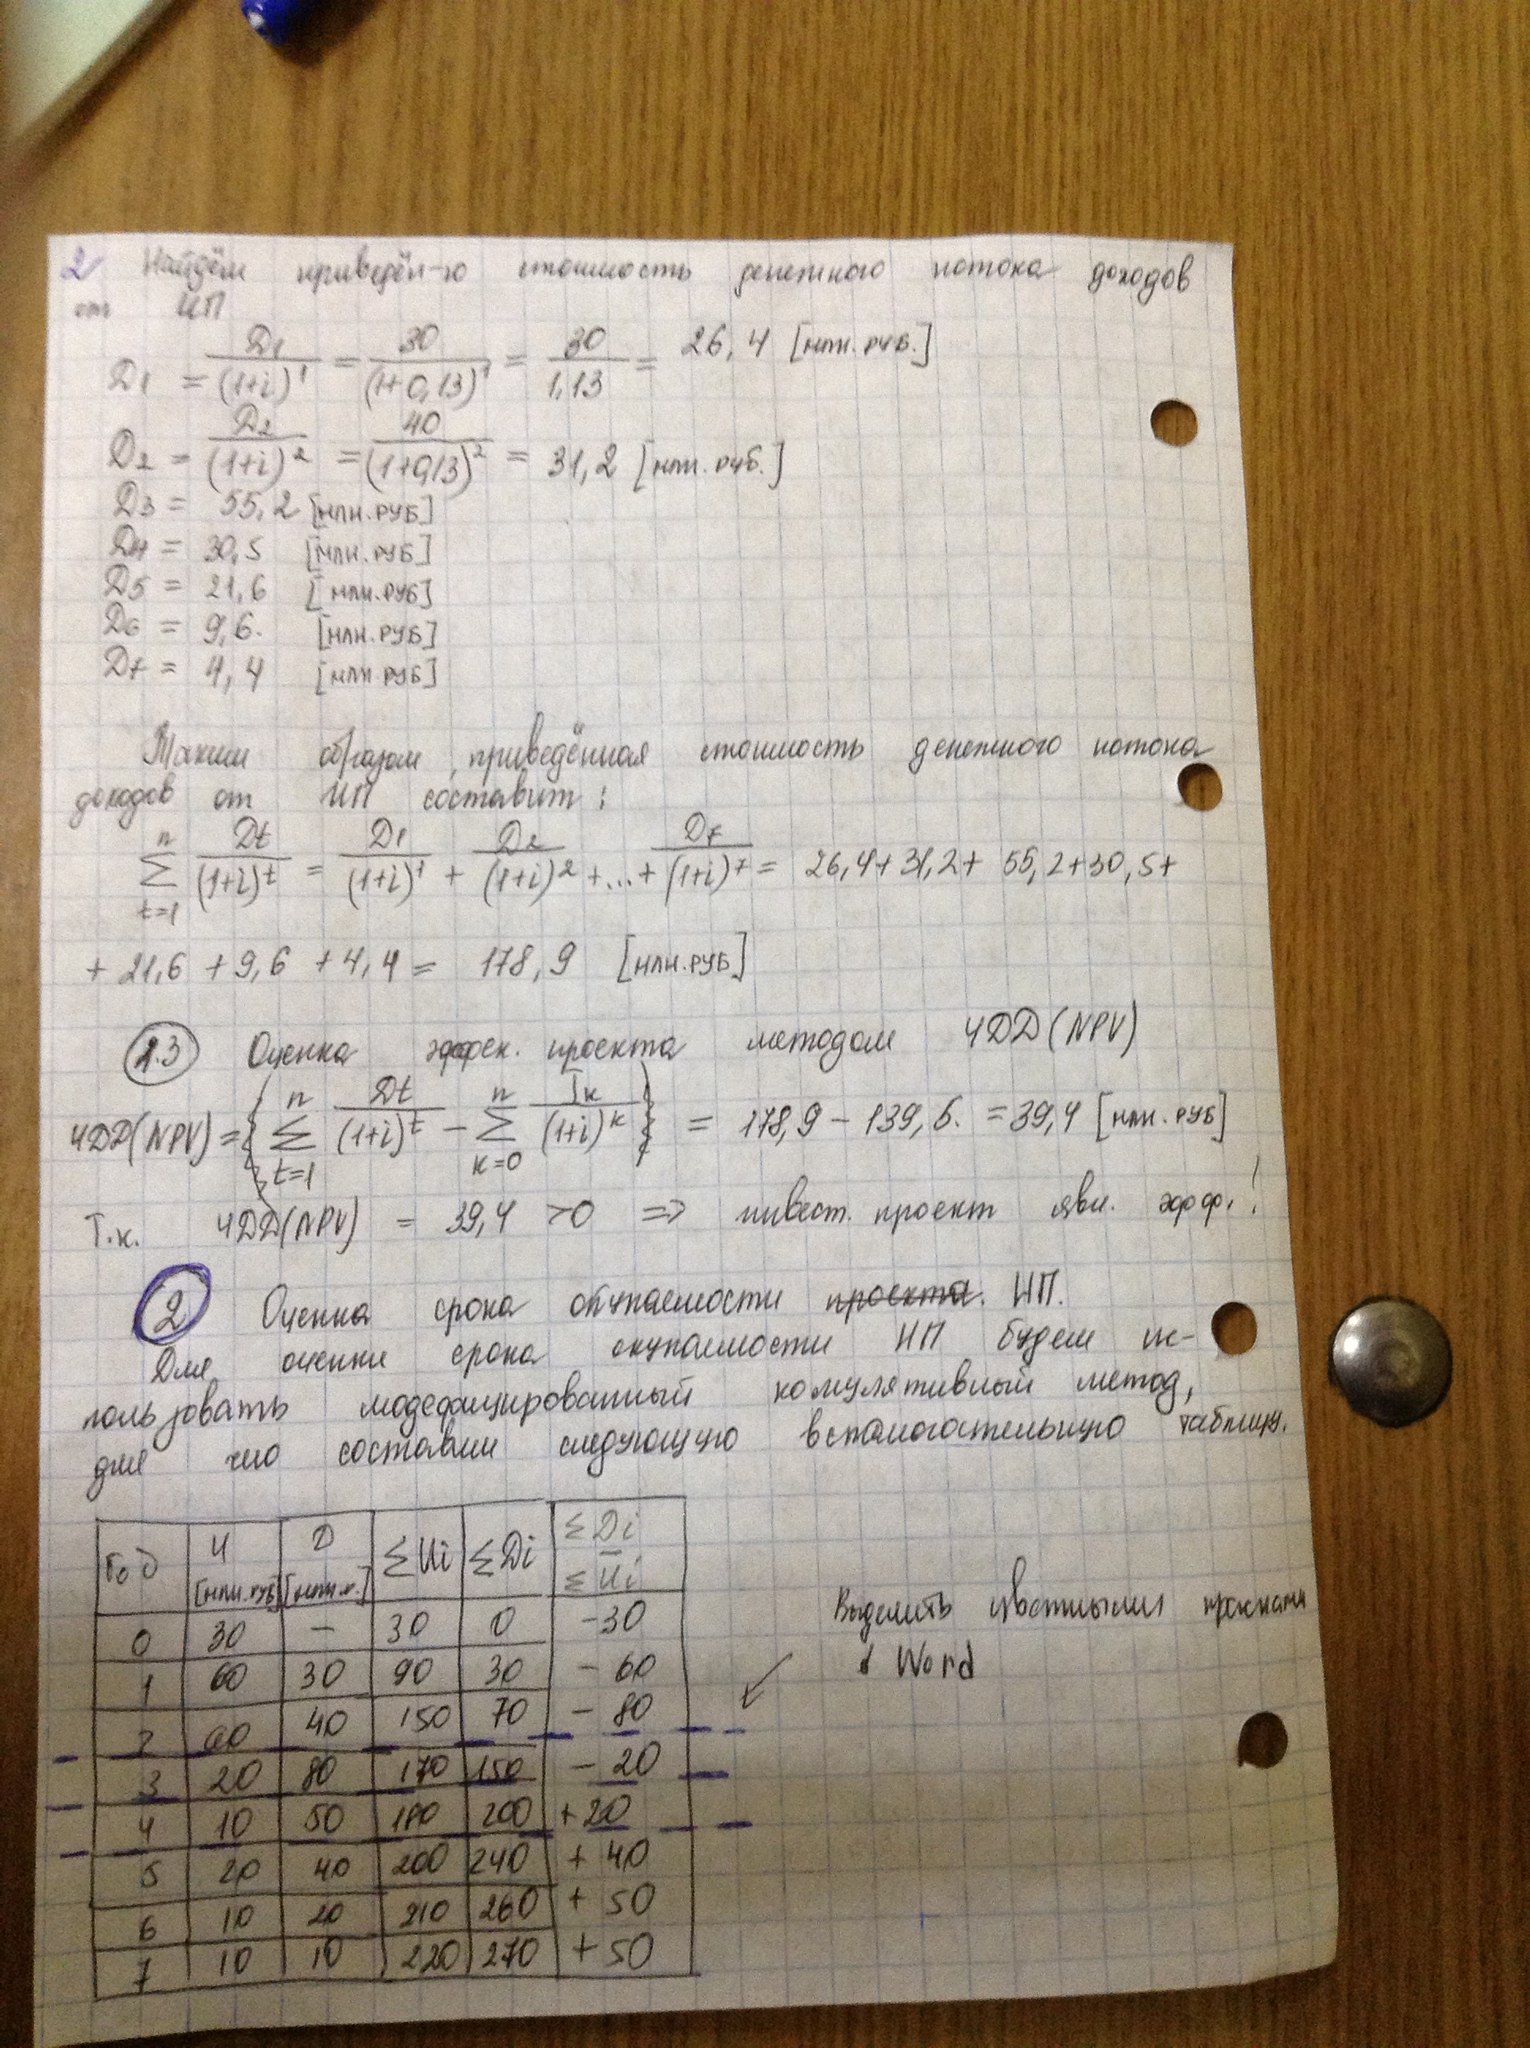 2 Найдём приведён-ю стоимость денежного потока доходов
от ИП
Д1 = Д1/(1+i)^1 = 30/(1+0,13)^1 = 30/1,13 = 26,4 [млн.руб.]
Д2 = Д2/(1+i)^2 = 40/(1+0,13)^2 = 31,2 [млн.руб.]
Д3 = 55,2 [млн.руб]
Д4 = 30,5 [млн.руб]
Д5 = 21,6 [млн.руб]
Д6 = 9,6. [млн.руб]
Д7 = 4,4 [млн.руб]
Таким образом, приведённая стоимость денежного потока
доходов от ИП составит:
n ∑ t=1 Дt/(1+i)^t = Д1/(1+i)^1 + Д2/(1+i)^2 +...+ Д7/(1+i)^7 = 26,4+31,2+ 55,2+30,5+
+ 21,6 + 9,6 + 4,4 = 178,9 [млн.руб]
1.3 Оценка эффек. проекта методом ЧДД(NPV)
ЧДД(NPV) = { n ∑ t=1 Дt/(1+i)^t − n ∑ к=0 Iк/(1+i)^к } = 178,9 − 139,5. = 39,4 [млн.руб]
Т.к. ЧДД(NPV) = 39,4 >0 => инвест. проект явл. эфф.!
2 Оценка срока окупаемости проекта. ИП.
Для оценки срока окупаемости ИП будем ис-
пользовать модефицированный комулятивный метод,
для чего составим следующую вспомогательную таблицу.
Год И [млн.руб] Д [млн.р.] ∑Иi ∑Дi ∑Дi − ∑Иi
0 30 − 30 0 −30
1 60 30 90 30 − 60
2 60 40 150 70 − 80
3 20 80 170 150 − 20
4 10 50 180 200 + 20
5 20 40 200 240 + 40
6 10 20 210 260 + 50
7 10 10 220 270 + 50
Выделить цветными
Word